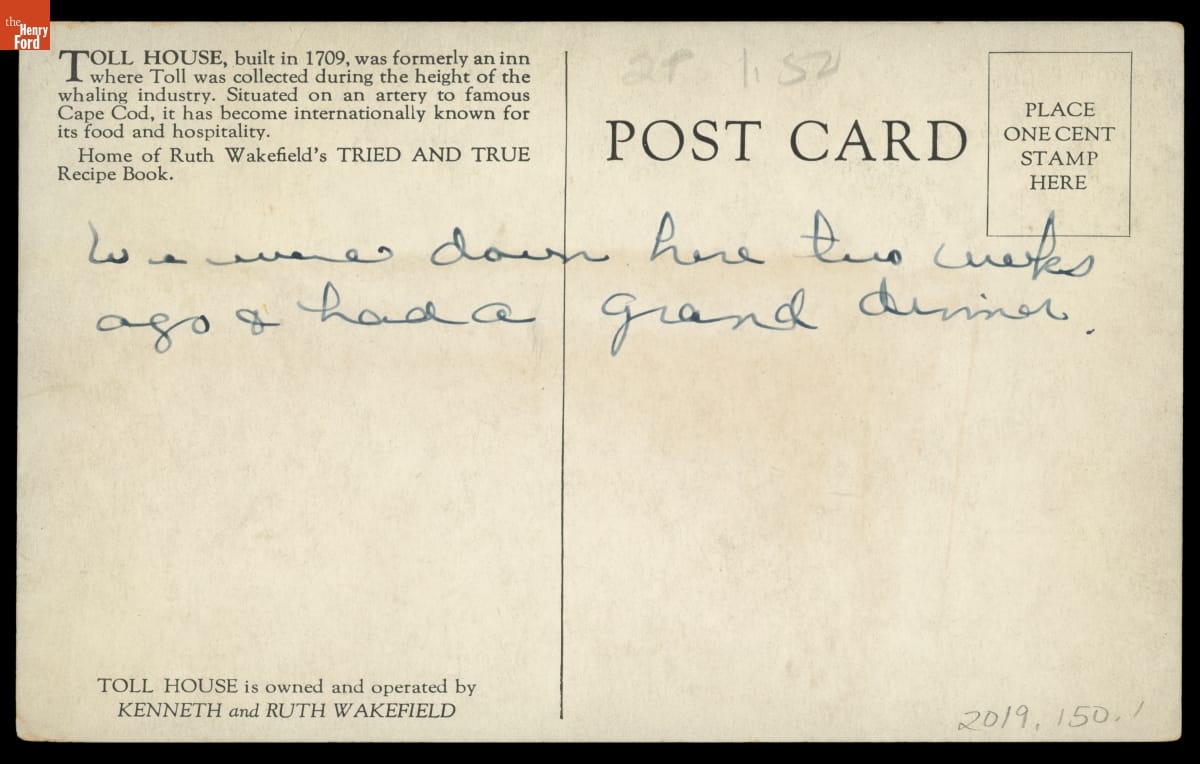 the
Henry
Ford
TOLL HOUSE, built in 1709, was formerly an inn
where Toll was collected during the height of the
whaling industry. Situated on an artery to famous
Cape Cod, it has become internationally known for
its food and hospitality.
Home of Ruth Wakefield's TRIED AND TRUE
Recipe Book.
POST CARD
PLACE
ONE CENT
STAMP
HERE
We were down here two weeks
ago & had a grand dinner.
TOLL HOUSE is owned and operated by
KENNETH and RUTH WAKEFIELD
2019.150.1